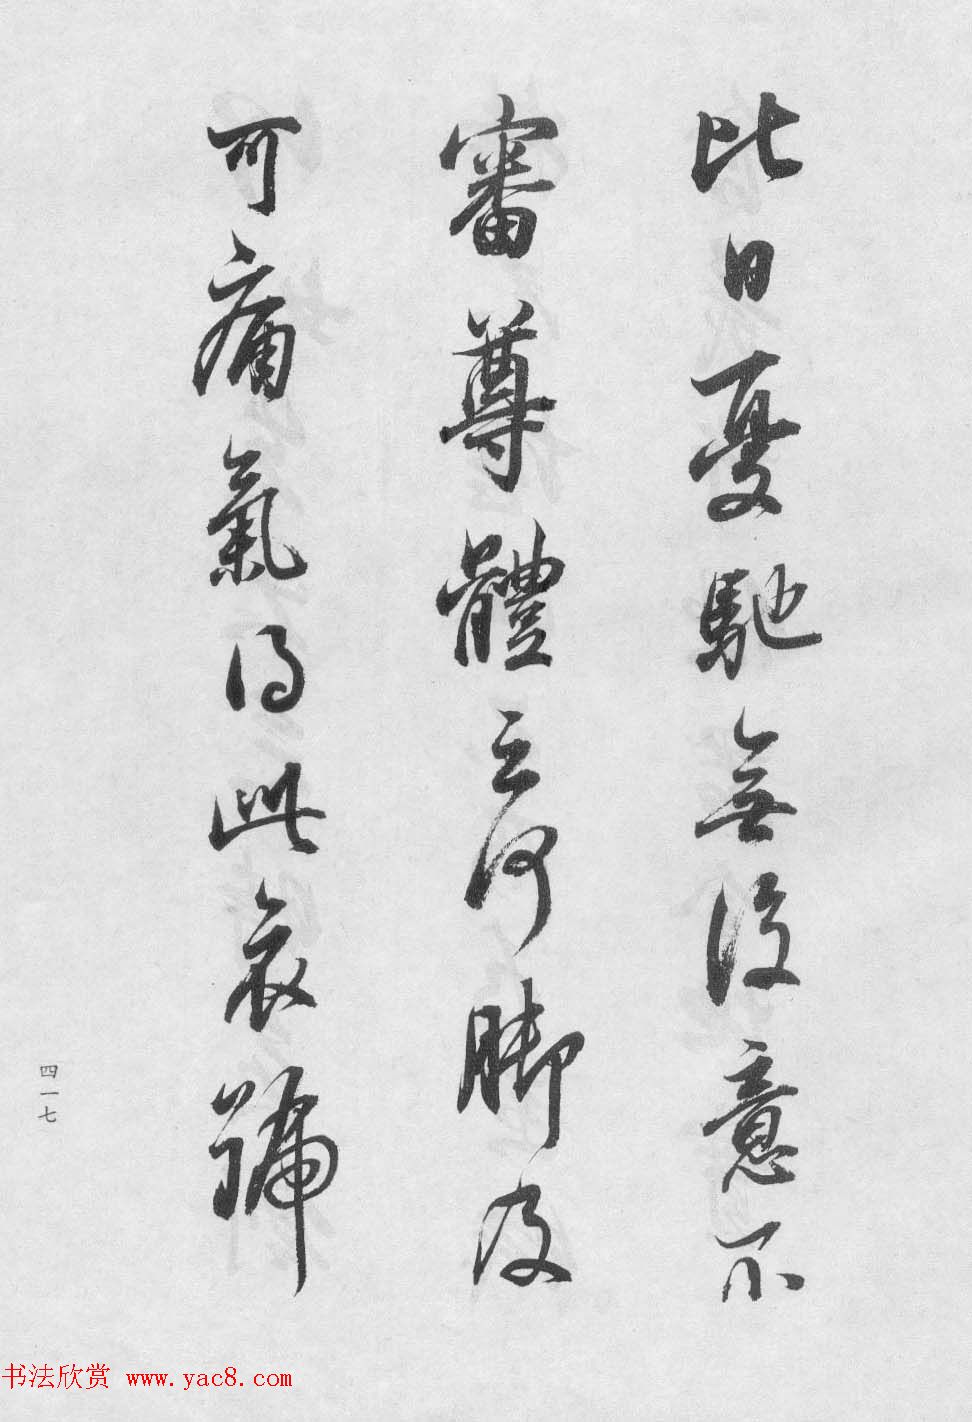 比日憂馳無復意不
審尊體云何腳及
可痛氣得此哀號
四一七
书法欣赏 www.yac8.com